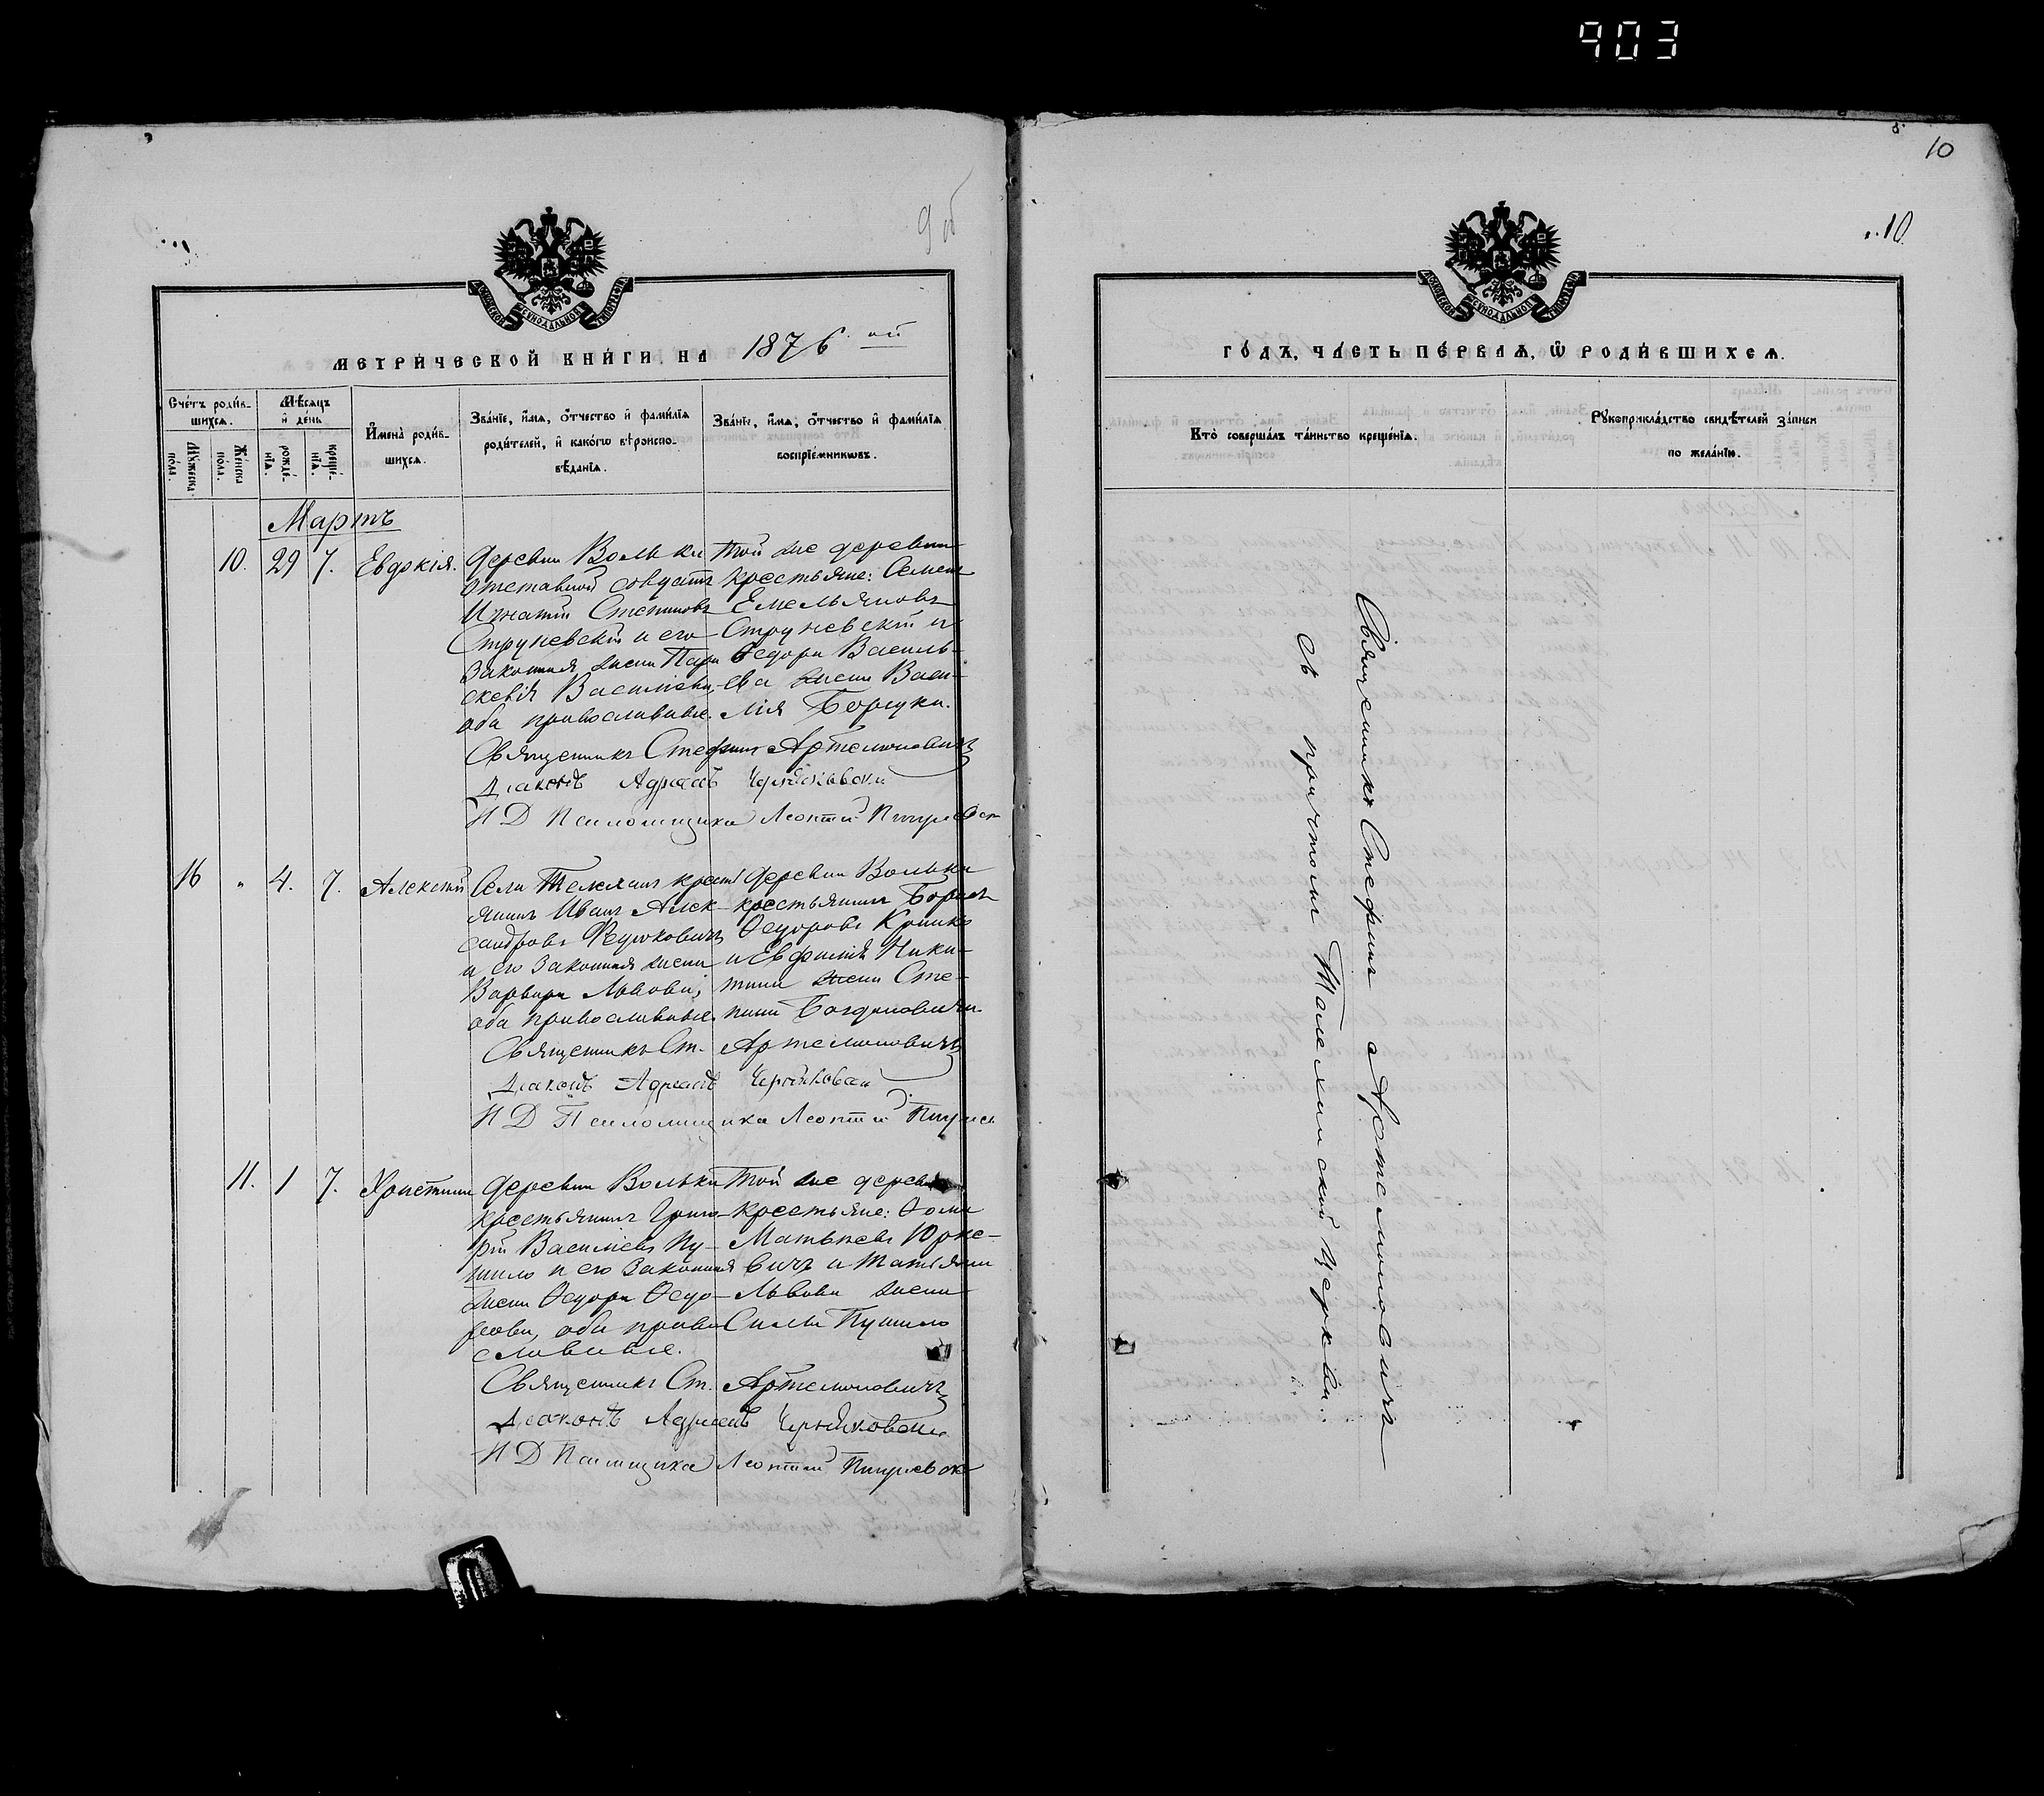 903
10
9 об
10
МОСКОВСКОЙ СѴНОДАЛЬНОЙ ТИПОГРАФІИ
МЕТРИ́ЧЕСКОЙ КНИ́ГИ НА 1876 ой
Сче́тъ роди́в-
шихсѧ.
Мѣ́сѧцъ
и҆ де́нь
Мꙋ́жеска
по́ла.
Же́нска
по́ла.
рожде́-
нїѧ.
креще́-
нїѧ.
И҆мена̀ роди́в-
шихсѧ.
Зва́нїе, и҆́мѧ, ѻ҆́тчество и҆ фами́лїѧ
роди́телей, и҆ како́гѡ вѣроиспо-
вѣ́данїѧ.
Зва́нїе, и҆́мѧ, ѻ҆́тчество и҆ фами́лїѧ
воспрїе́мникѡвъ.
Мартъ
10. 29 7. Евдокія.
деревни Вольки
отставной солдатъ
Игнатій Степановъ
Струневскій и его
законная жена Пара
скевія Васильева,
оба православные.
Той же деревни
крестьяне: Семенъ
Емельяновъ
Струневскій и
Ѳедора Василь-
ева жена Васи-
лія Борсука.
Священникъ Стефанъ Артемоновичъ
Діаконъ Адріанъ
И Д Псаломщика Леонтій
16 " 4. 7. Алексѣй
Села Телехан крестьянинъ
Иванъ Алек-
сандровъ Федюковичъ
и его законная жена
Варвара Львова,
оба православные.
деревни Вольки
крестьянинъ Борисъ
Ѳедоровъ Кришко
и Евфимія Ники-
тина жена Сте-
пана Богдановича.
Священникъ Ст. Артемоновичъ
Діаконъ Адріанъ
И Д Псаломщика Леонтій
11. 1 7. Христина
деревни Вольки
крестьянинъ Григо-
рій Васильевъ Пу-
шило и его законная
жена Ѳедора Ѳедо-
рова, оба право
славные.
Той же деревни
крестьяне: Ѳома
Матвѣевъ Юрке-
вичъ и Татьяна
Львова жена
Силы Пушило
Священникъ Ст. Артемоновичъ
Діаконъ Адріанъ
И Д Псаломщика Леонтій
ГО́ДЪ, ЧА́СТЬ ПЕ́РВАѦ, Ѽ РОДИ́ВШИХСѦ.
Кто̀ соверша́лъ та́инство креще́нїѧ.
Рꙋкоприкла́дство свидѣ́телей за́писи
по жела́нїю.
Священникъ Стефанъ Артемоновичъ
съ причтомъ Телеханской церкви.